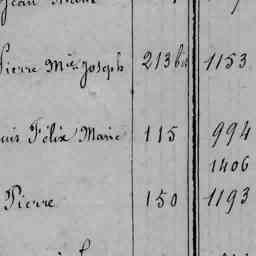 Pierre Mie Joseph 213 bis 1153
Félix Marie 115 994
1406
Pierre 150 1193